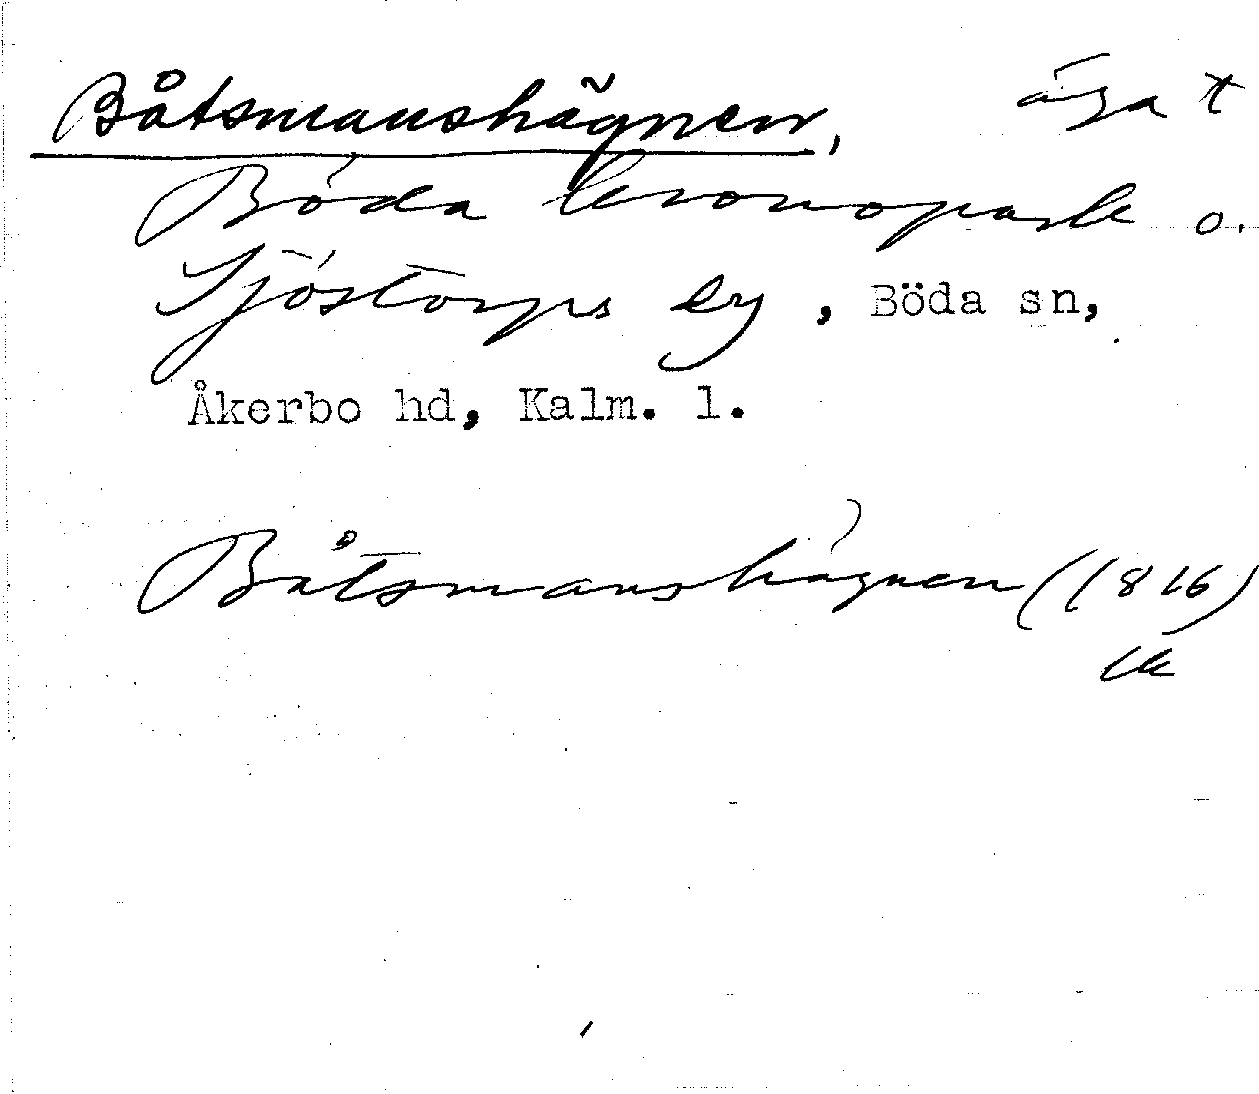 Båtsmanshägnen, äga †
Böda kronopark o.
Sjöstorps by, Böda sn,
Åkerbo hd, Kalm. l.
Båtsmanshägnen (1816)